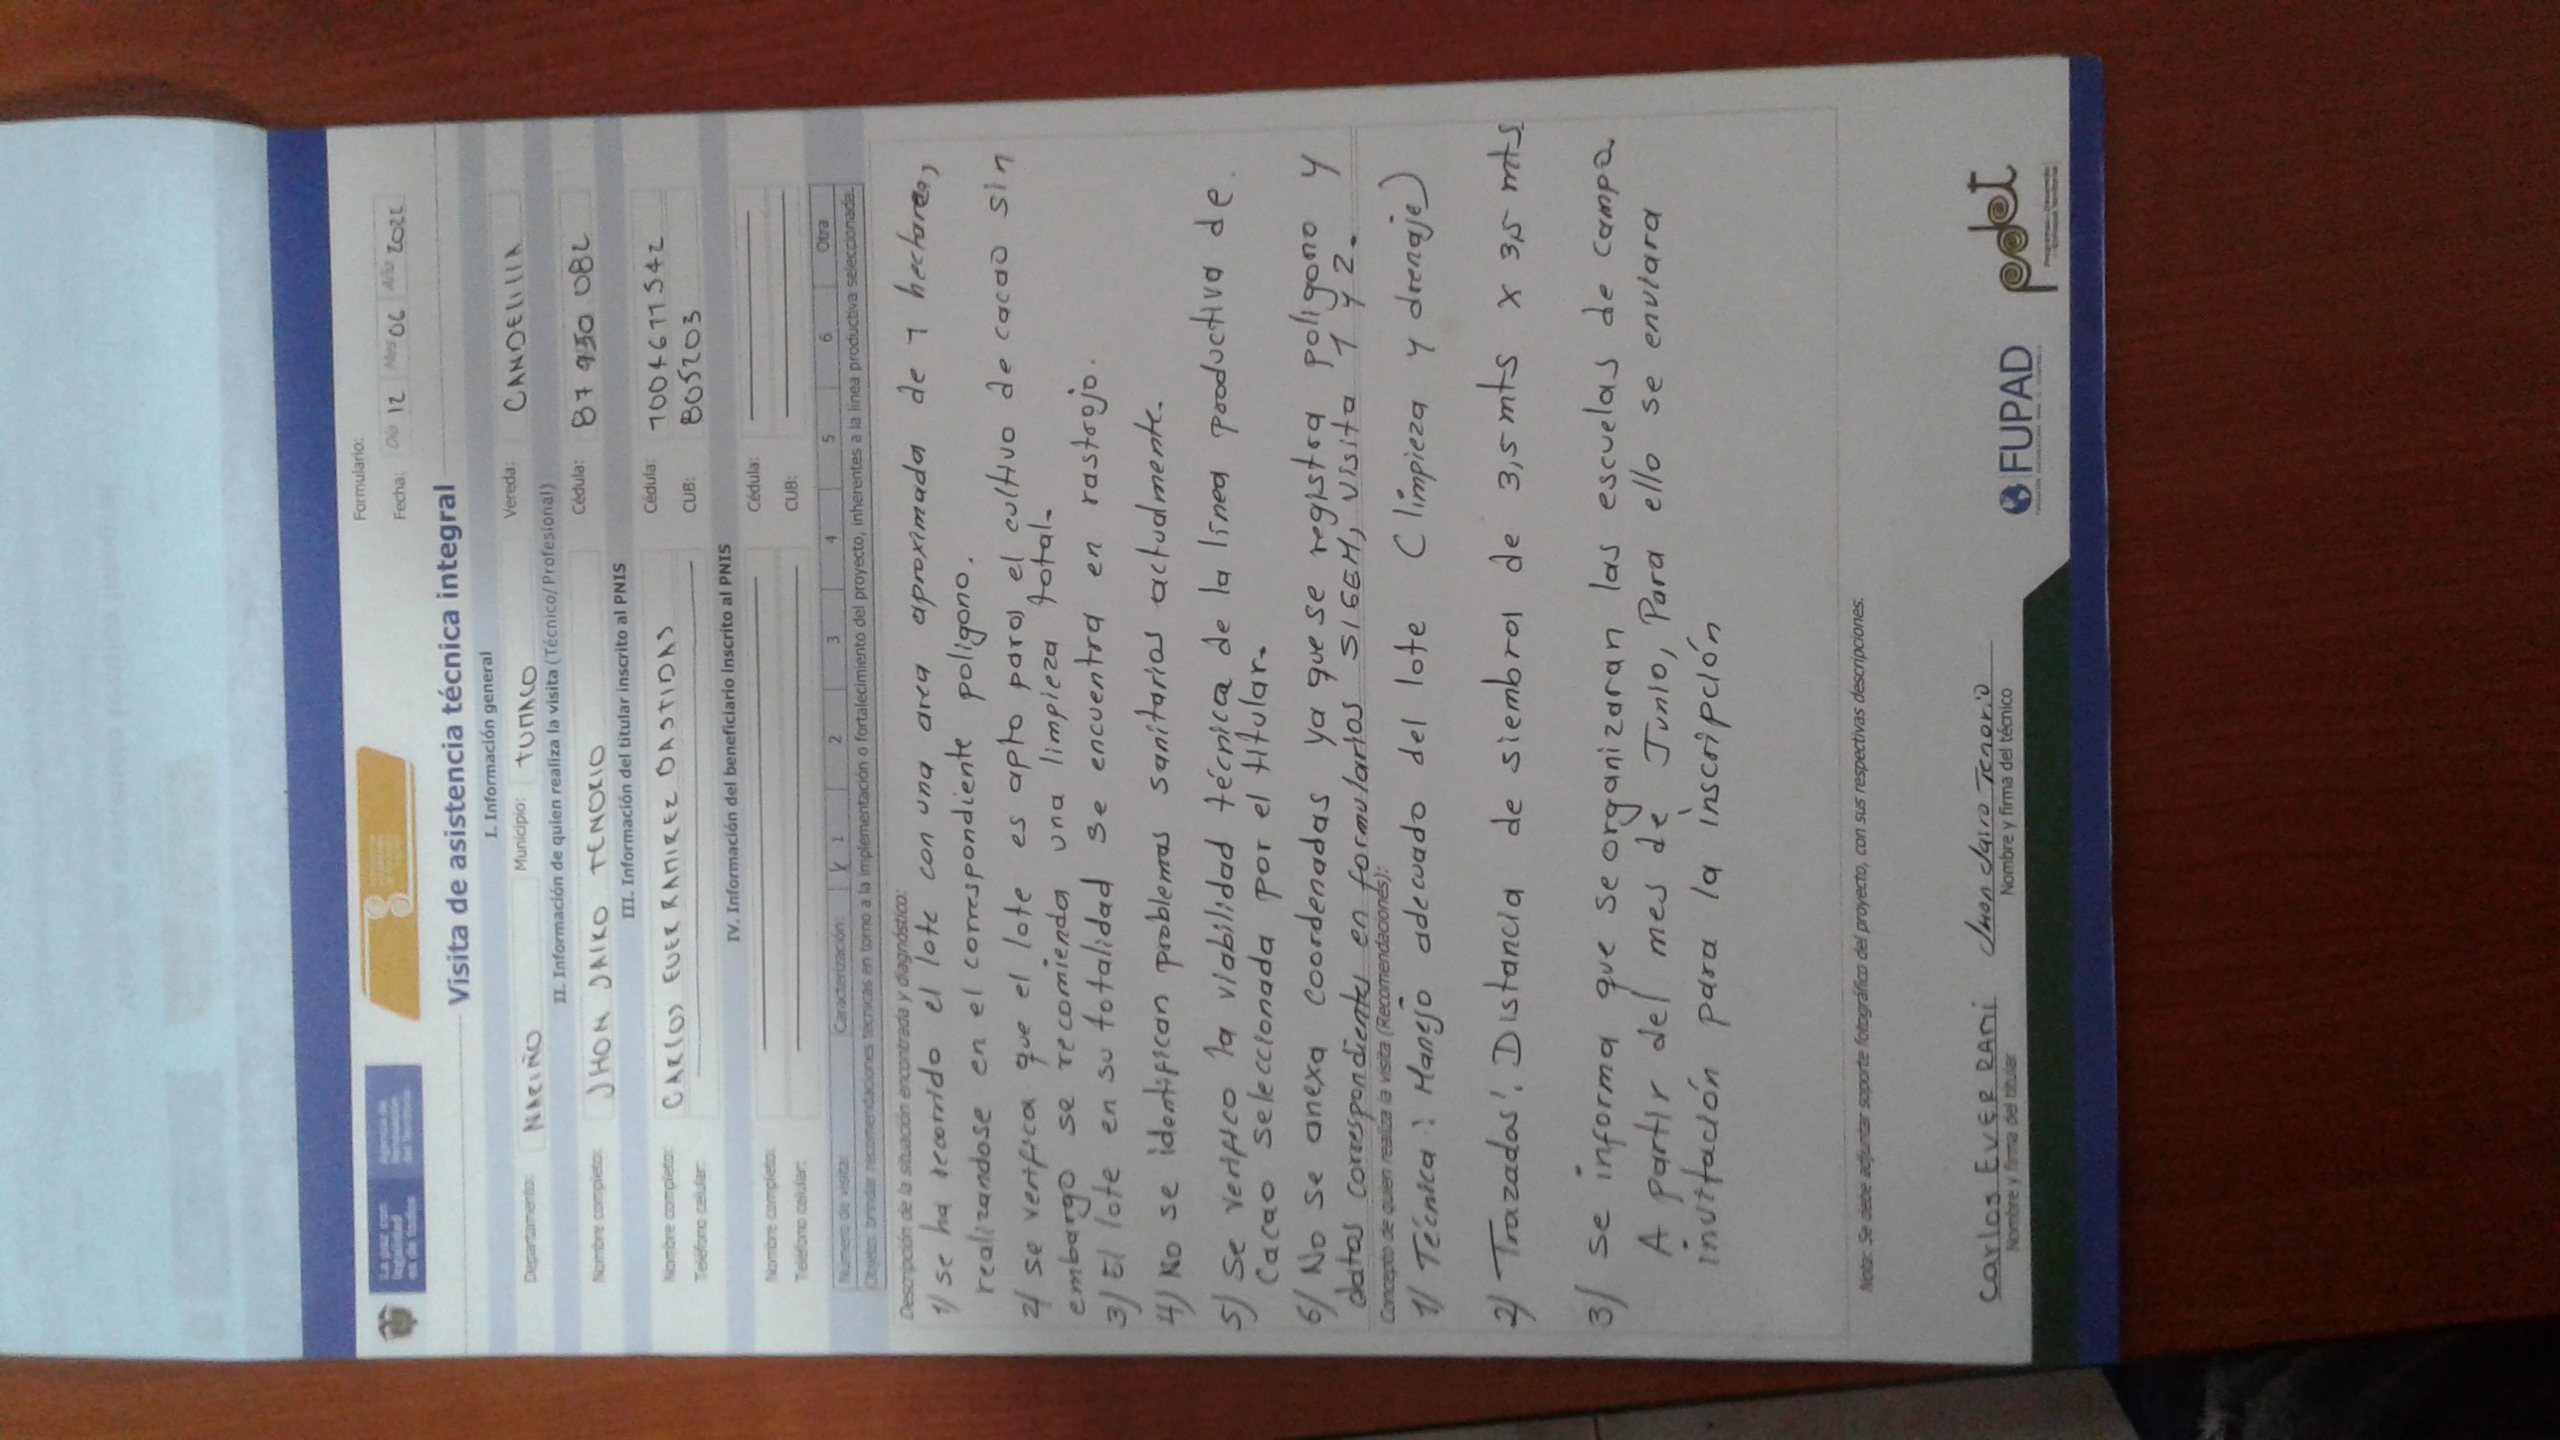 La paz con legalidad es de todos
Agencia de Renovación del Territorio
Formulario:
Fecha: Día 12 Mes 06 Año 2022
Visita de asistencia técnica integral
I. Información general
Departamento: NARIÑO Municipio: TUMACO Vereda: CANDELILLA
II. Información de quien realiza la visita (Técnico/Profesional)
Nombre completo: JHON JAIRO TENORIO Cédula: 87 930 082
III. Información del titular inscrito al PNIS
Nombre completo: CARLOS EVER RAMIREZ BASTIDAS Cédula: 1004611542
Teléfono celular: CUB: 805203
IV. Información del beneficiario inscrito al PNIS
Nombre completo: Cédula:
Teléfono celular: CUB:
Número de visita: Caracterización: X 1 2 3 4 5 6 Otra
Objeto: brindar recomendaciones técnicas en torno a la implementación o fortalecimiento del proyecto, inherentes a la línea productiva seleccionada.
Descripción de la situación encontrada y diagnóstico:
1) se ha recorrido el lote con una area aproximada de 1 hectarea,
realizandose en el correspondiente poligono.
2) se verifica que el lote es apto para el cultivo de cacao sin
embargo se recomienda una limpieza total.
3) El lote en su totalidad se encuentra en rastrojo.
4) No se identifican problemas sanitarios actualmente.
5) Se verifico la viabilidad técnica de la linea productiva de
Cacao seleccionada por el titular.
6) No se anexa coordenadas ya que se registra poligono y
datos correspondientes en formularios SIGEM, visita 1 y 2.
Concepto de quien realiza la visita (Recomendaciones):
1) Técnica: Manejo adecuado del lote (limpieza y drenaje)
2) Trazados: Distancia de siembra de 3,5 mts x 3,5 mts
3) Se informa que se organizaran las escuelas de campo
A partir del mes de Junio, Para ello se enviara
invitación para la inscripción
Nota: Se debe adjuntar soporte fotográfico del proyecto, con sus respectivas descripciones.
Carlos EVER RAMI Jhon Jairo Tenorio
Nombre y firma del titular Nombre y firma del técnico
FUPAD
pdet